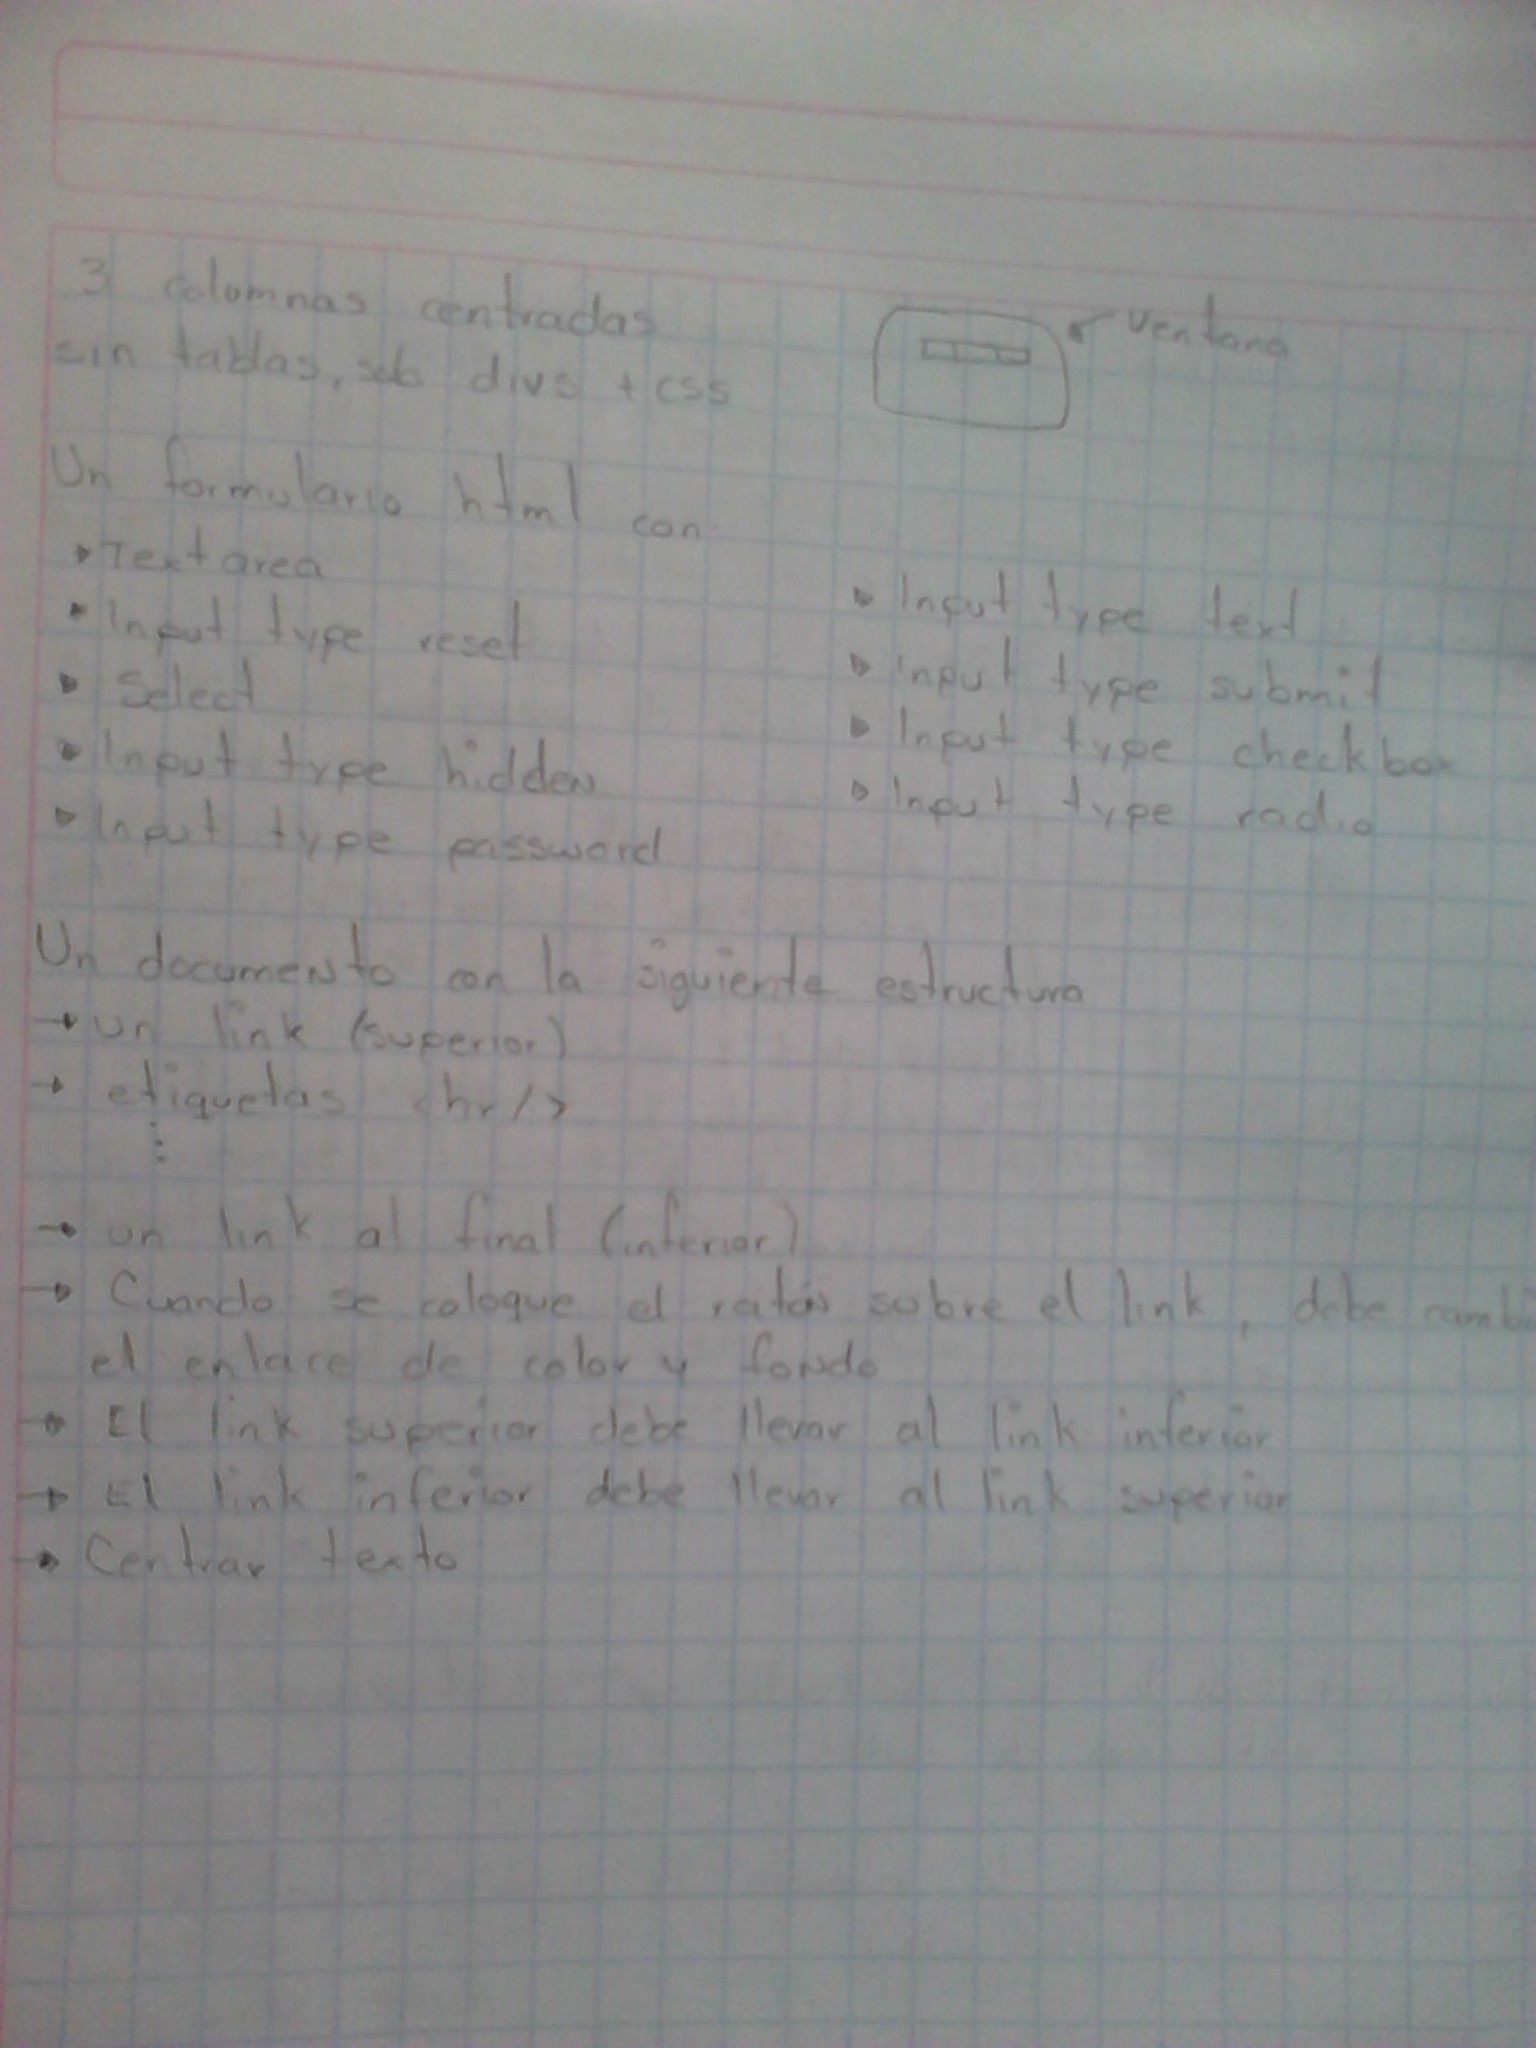 3 columnas centradas
ventana
sin tablas, solo divs + css
Un formulario html con
Textarea
Input type reset
Select
Input type hidden
Input type password
Input type text
Input type submit
Input type checkbox
Input type radio
Un documento con la siguiente estructura
→ Un link (superior)
→ etiquetas <hr/>
⋮
→ un link al final (inferior)
→ Cuando se coloque el ratón sobre el link, debe cambi
el enlace de color y fondo
→ El link superior debe llevar al link inferior
→ El link inferior debe llevar al link superior
→ Centrar texto